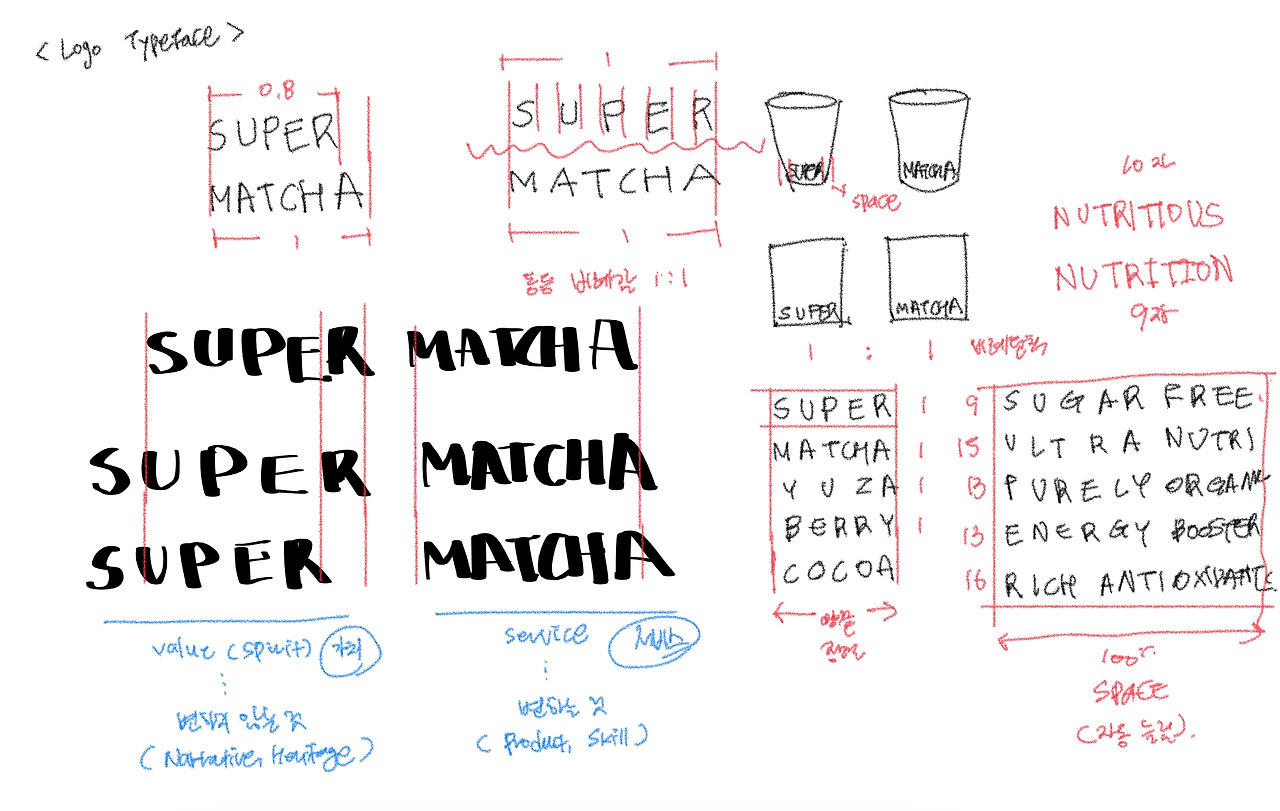 < Logo Typeface >
0.8
SUPER
MATCHA
1
1
SUPER
MATCHA
1
동등 비례감 1:1
SUPER
MATCHA
space
SUPER
MATCHA
1 : 1
10자
NUTRITIOUS
NUTRITION
9자
SUPER MATCHA
SUPER MATCHA
SUPER MATCHA
SUPER 1
MATCHA 1
YUZA 1
BERRY 1
COCOA
9 SUGAR FREE
15 ULTRA NUTRI
13 PURELY ORGANIC
13 ENERGY BOOSTER
16 RICH ANTIOXIDANTS
100%
SPACE
(자동 늘림).
value (Spirit) 가치
변하지 않는 것
(Narrative, Heritage)
service 서비스
변하는 것
(Product, Skill)